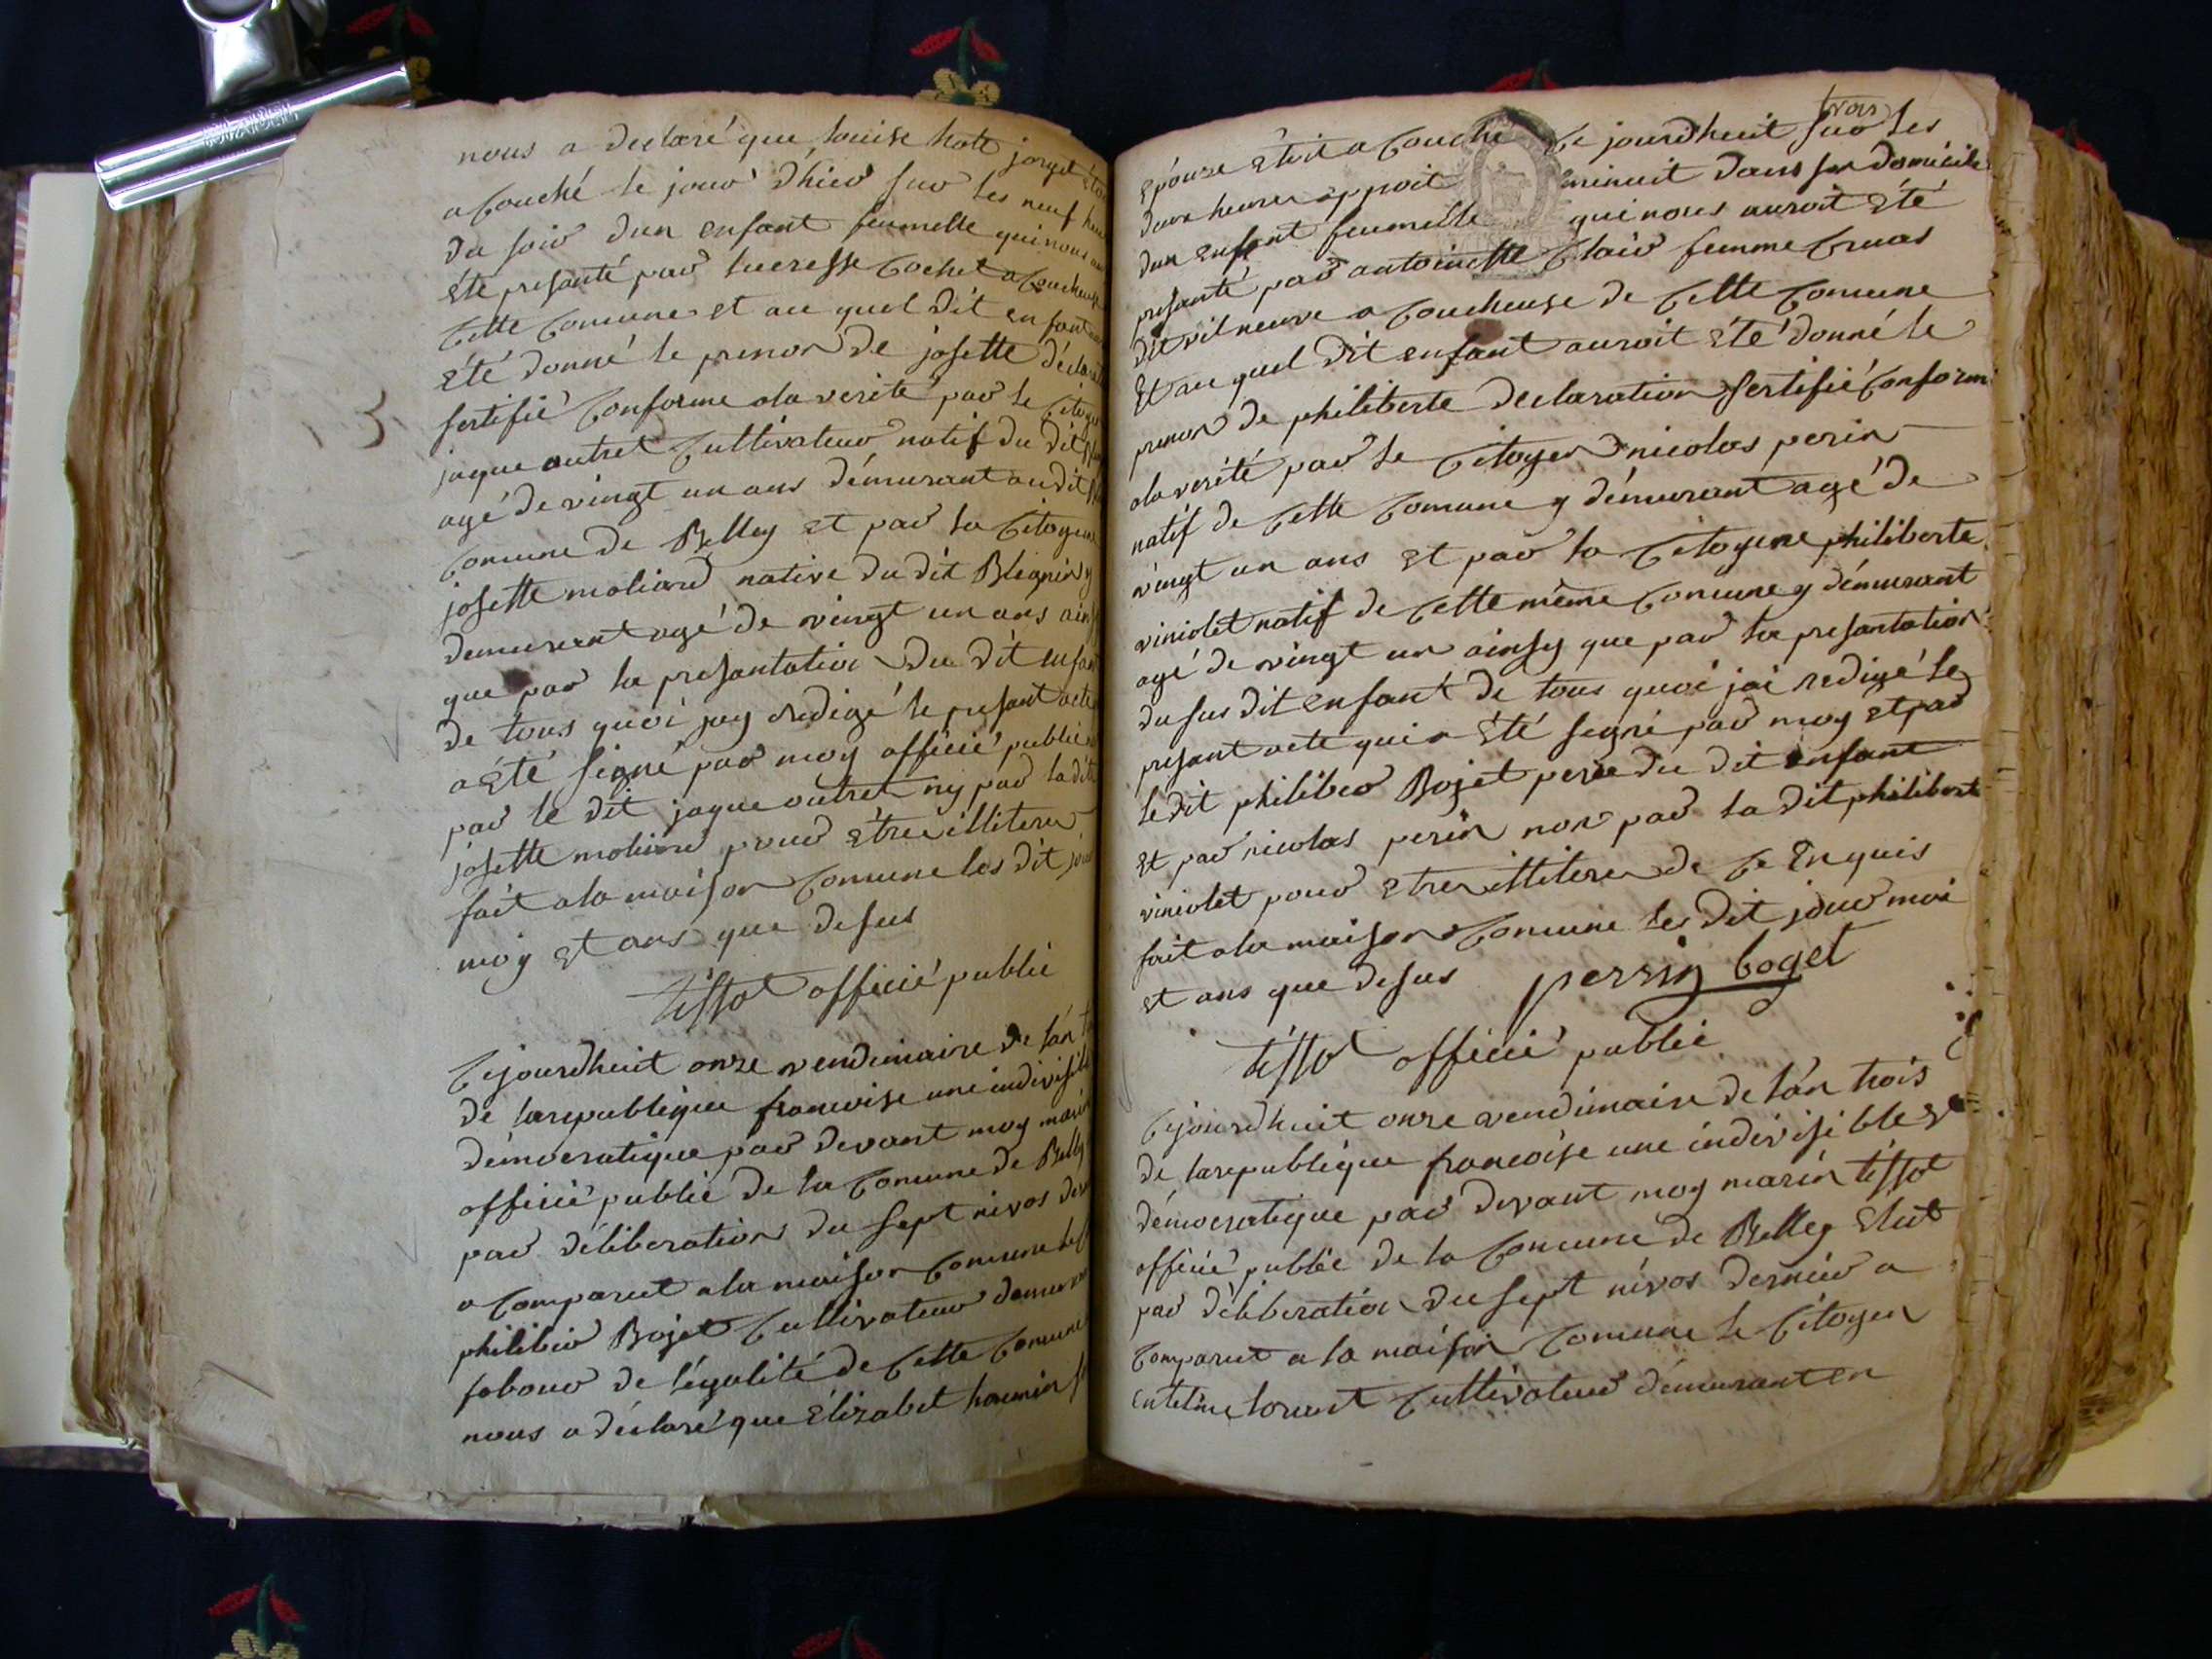 nous a declaré que louise hote jorget
acouché le jour d'hier sur les neuf
du soir dun enfant feumelle qui nous
été presanté par lucresse Cochet acoucheuse
Cette Comune et au quel dit enfant
été donné le prenon de josette
sertifié Conforme ala verité par le
jaque autret Cultivateur natif du dit
agé de vingt un ans démurant au dit
Comune de Belley et par la Citoyene
josette moliard native du dit Blegnin y
demurant agé de vingt un ans
que par la presantation du dit enfant
de tous quoi jay redigé le presant acte
a été signé par moy officié public
par le dit jaque autret ny par la dite
josette moliard pour être illitere
fait ala maison Comune les dit jour
moy et ans que desus
tissot officié public
Cejourdhuit onze vendimaire de lán
de larepublique francoise une indivisible
démocratique par devant moy marin
officié public de la Comune de Belley
par déliberation du sept nivos
a Comparut ala maison Comune
philiber Bojet Cultivateur demurant
fobour de légalité de Cette Comune
nous a déclaré que élizabet
3
épouze étoit acouché Ce jourdhuit sur les
trois
dans heures minuit dans son domicile
dun enfant feumelle qui nous auroit été
presanté par antoinette Clair femme
dit vilneuve acoucheuse de Cette Comune
Et au quel dit enfant auroit été donné le
prenon de philiberte declaration sertifié Conforme
ala verité par le Citoyen nicolas perin
natif de Cette Comune y démurant agé de
vingt un ans et par la Citoyene philiberte
viniolet natif de Cette même Comune y démurant
agé de vingt un ainsy que par la presantation
du sus dit enfant de tous quoi jai redigé le
presant acte qui a été segné par moy et par
le dit philiber Bojet pere du dit enfant
et par nicolas perin non par la dit philibert
viniolet pour être illitere de Ce Enquis
fait ala maison Comune les dit jour moi
et ans que desus perrin boget
tissot officié public
Cejourdhuit onze vendimaire de lán trois
de larepublique francoise une indivisible et
démocratique par devant moy marin tissot
officié public de la Comune de Belley élut
par déliberation du sept nivos dernier a
Comparut a la maison Comune le Citoyen
Cultivateur démurant en